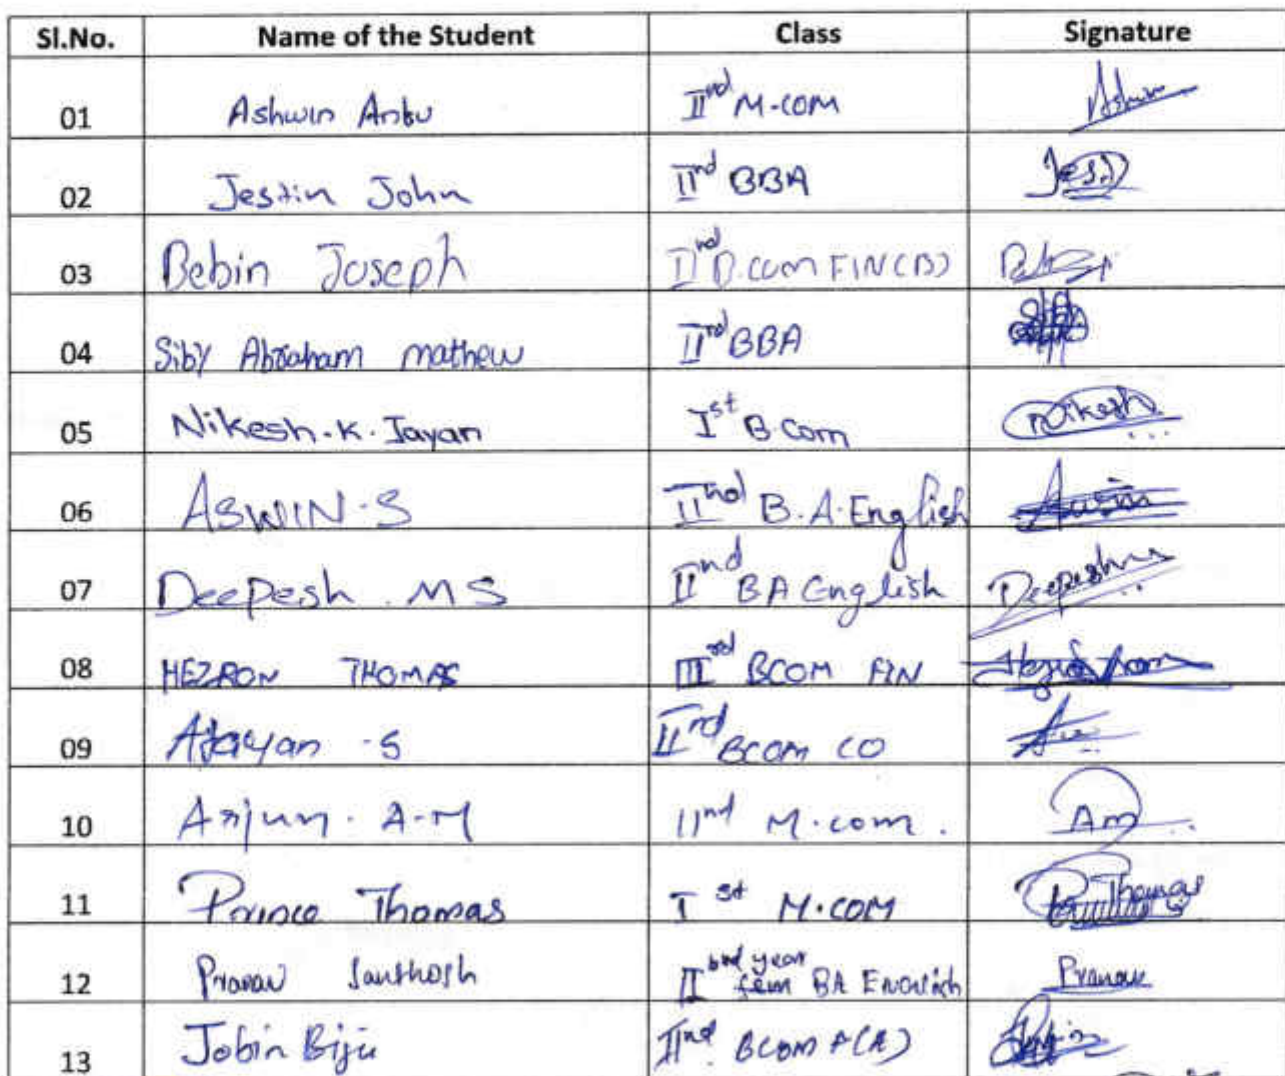 Sl.No. Name of the Student Class Signature
01 Ashwin Antu IInd M.COM Ashwin
02 Jestin John IInd BBA
03 Bebin Joseph IInd B.com FIN(B)
04 Siby Abraham mathew IInd BBA
05 Nikesh.K.Jayan Ist B.Com Nikesh
06 ASWIN.S IInd B.A.English
07 Deepesh.MS IInd BA English Deepesh
08 HEZRON THOMAS IIIrd BCOM FIN
09 Ajayan.S IIrd BCOM CO
10 Arjun.A.M IInd M.com.
11 Prince Thomas Ist M.COM Thomas
12 Pranav Santhosh II year sem BA English Pranav
13 Jobin Biju IInd BCOM F(A)